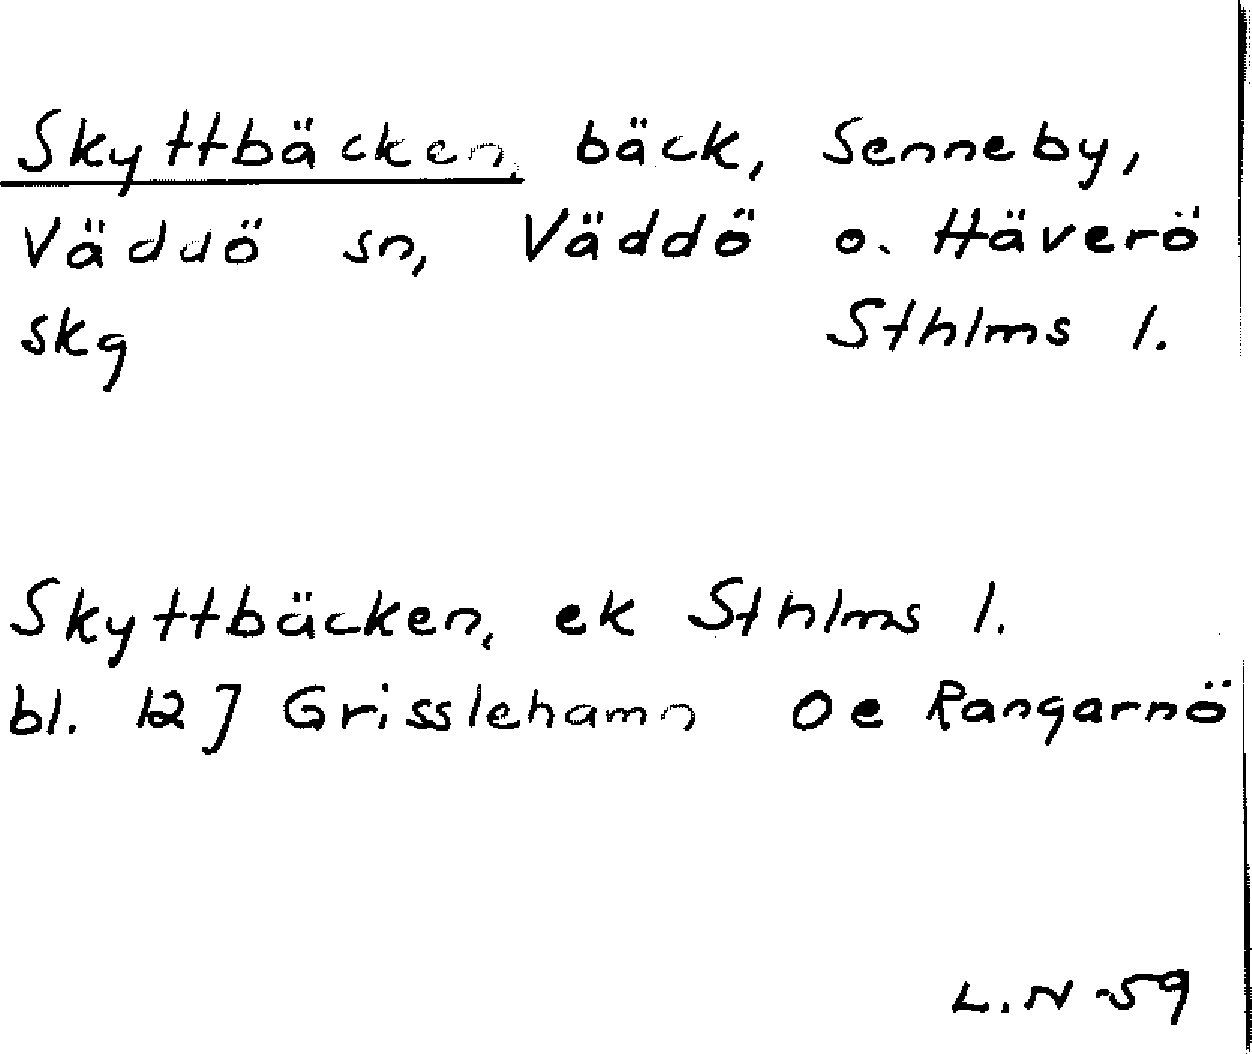 Skyttbäcken, bäck, Senneby,
Väddö sn, Väddö o. Häverö
skg Sthlms l.
Skyttbäcken, ek Sthlms l.
bl. 12 J Grisslehamn Oe Rangarnö
L.N -59